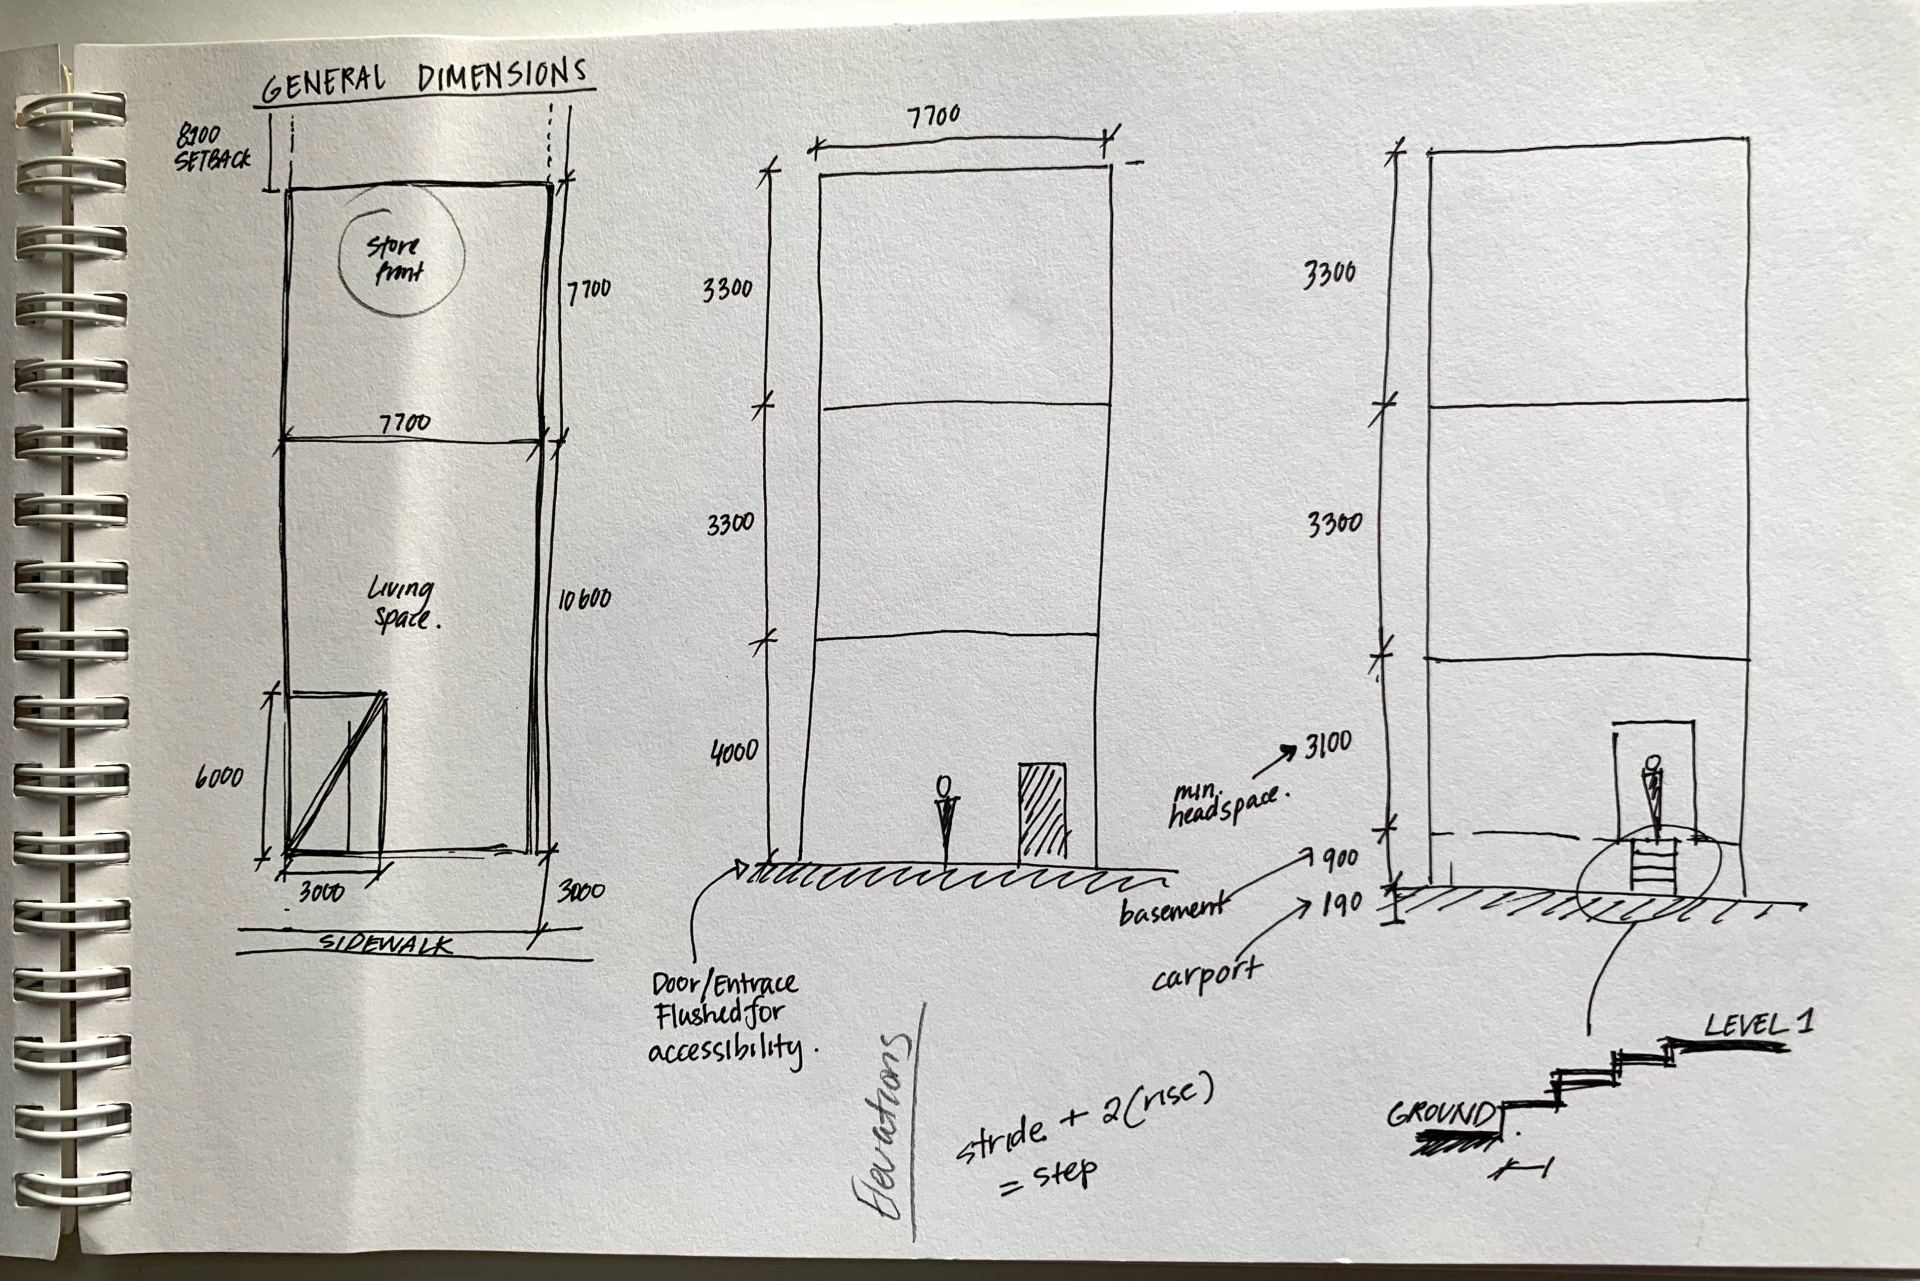 GENERAL DIMENSIONS
8100
SETBACK
Store
front
7700
7700
Living
space.
10600
6000
3000
3000
SIDEWALK
7700
3300
3300
4000
Door/Entrace
Flushed for
accessibility.
Elevations
stride + 2(rise)
= step
3300
3300
3100
min.
headspace.
900
basement
190
carport
LEVEL 1
GROUND